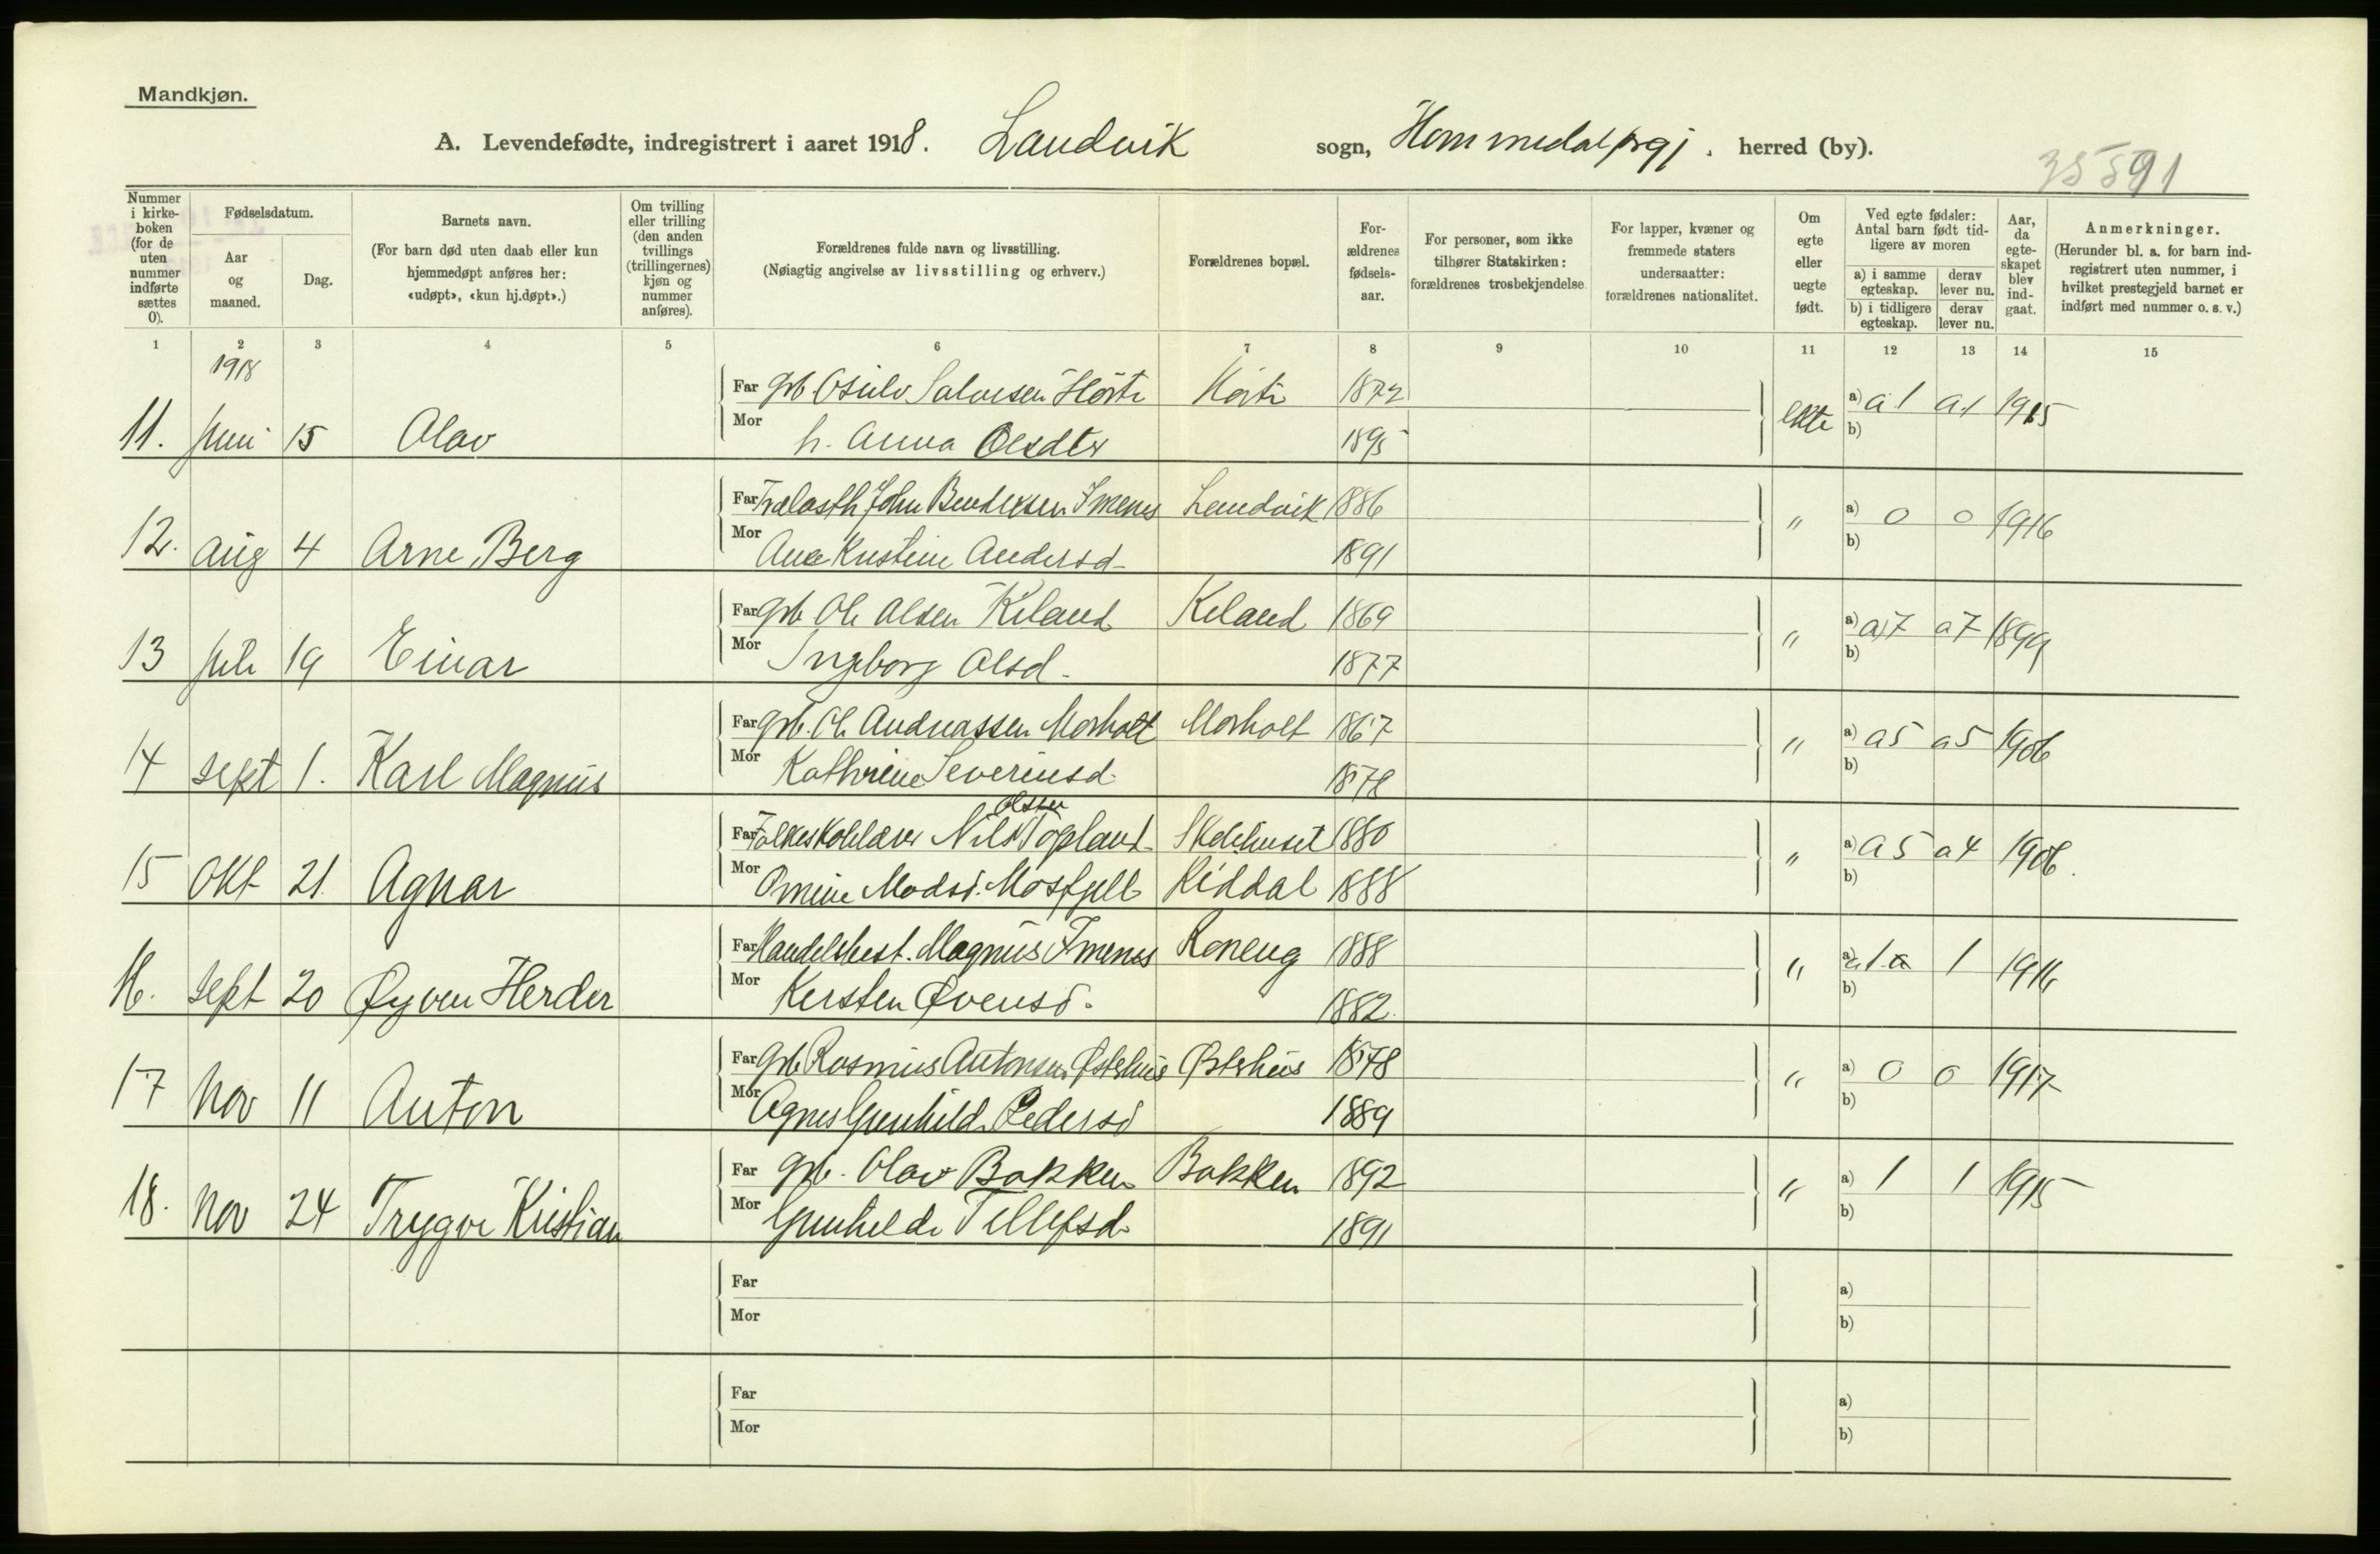 Mandkjøn.
A. Levendefødte, indregistrert i aaret 1918. Landvik sogn, Hommedal prgj. herred (by).
35591
Nummer i kirke-boken (for de uten nummer indførte sættes 0).
Fødselsdatum.
Aar og maaned.
Dag.
Barnets navn.
(For barn død uten daab eller kun hjemmedøpt anføres her: «udøpt», «kun hj.døpt».)
Om tvilling eller trilling (den anden tvillings (trillingernes) kjøn og nummer anføres).
Forældrenes fulde navn og livsstilling.
(Nøiagtig angivelse av livsstilling og erhverv.)
Forældrenes bopæl.
For-ældrenes fødsels-aar.
For personer, som ikke tilhører Statskirken: forældrenes trosbekjendelse
For lapper, kvæner og fremmede staters undersaatter: forældrenes nationalitet.
Om egte eller uegte født.
Ved egte fødsler: Antal barn født tid-ligere av moren
a) i samme egteskap.
derav lever nu.
b) i tidligere egteskap.
derav lever nu.
Aar, da egte-skapet blev ind-gaat.
Anmerkninger.
(Herunder bl. a. for barn ind-registrert uten nummer, i hvilket prestegjeld barnet er indført med nummer o. s. v.)
1 2 3 4 5 6 7 8 9 10 11 12 13 14 15
1918
Far grb. Osulv Salvesen Hørte Hørte 1872
11. Juni 15 Olav ekte a) a 1 a 1 1915
Mor h. Anna Olsdtr 1895 b)
Far Trælasth John Bendiksen Imenes Landvik 1886
12. Aug 4 Arne Berg " a) 0 0 1916
Mor Ane Kristine Andersd. 1891 b)
Far grb Ole Olsen Kiland Kiland 1869
13 Juli 19 Einar " a) a) 7 a 7 1899
Mor Ingeborg Olsd. 1877 b)
Far grb. Ole Andreassen Morholt Morholt 1867
14 Sept 1. Karl Magnus " a) a 5 a 5 1906
Mor Kathrine Severinsd. 1878 b)
Olsen
Far Folkeskolelærer Nils Topland Skolehuset 1880
15 Okt 21. Agnar " a) a 5 a 4 1906.
Mor Omine Madsd. Mosfjell Riddal 1888 b)
Far Handelsbest. Magnus Imenes Roneng 1888
16. Sept 20 Øyven Herder " a) a 1 a 1 1916
Mor Kersten Øvensd. 1882. b)
Far grb Rasmus Antonsen Østerhus Østerhus 1878
17 Nov 11 Anton " a) 0 0 1917
Mor Agnes Gunhilde Pedersd 1889 b)
Far grb. Olav Bakken Bakken 1892
18. Nov 24 Trygve Kristian " a) 1 1 1915
Mor Gunhilde Tellefsd. 1891 b)
Far a)
Mor b)
Far a)
Mor b)